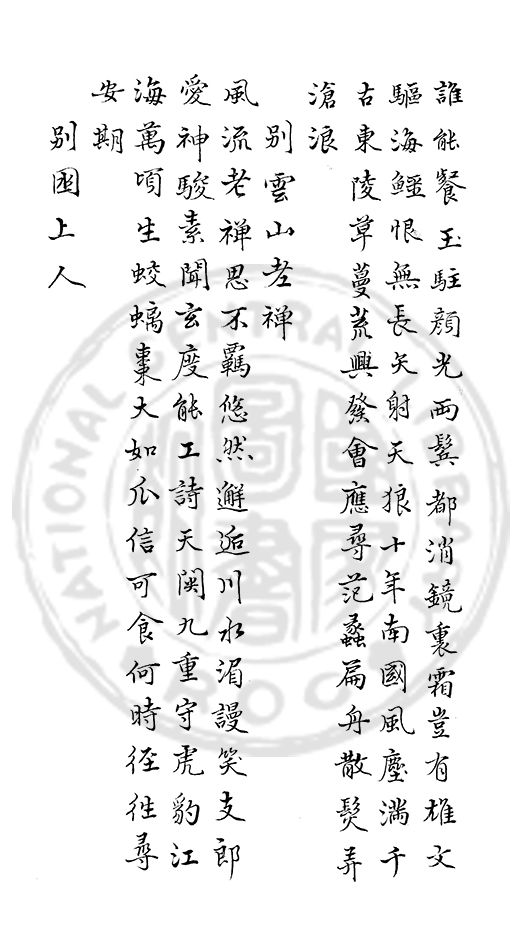 誰能餐玉駐顏光両鬂都消鏡裏霜豈有雄文
驅海鱷恨無長矢射天狼十年南國風塵滿千
古東陵草蔓荒興發會應尋范蠡扁舟散髮弄
滄浪
别雲山老禅
風流老禅思不羈悠然邂逅川水湄謾笑支郎
愛神駿素聞玄度能工詩天関九重守虎豹江
海萬頃生蛟螭棗大如瓜信可食何時徑往尋
安期
别困上人
NATIONAL CENTRAL LIBRARY
R.O.C.